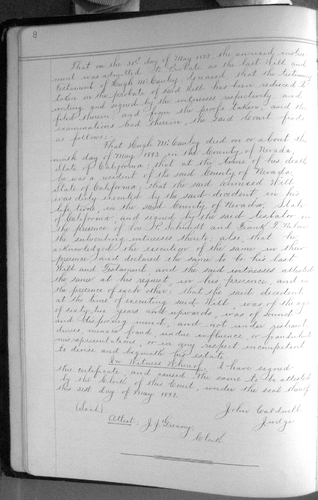 8
That on the 31st day of May 1893, the annexed instru-
ment was admitted to Probate as the last Will and
Testament of Hugh McCauley, deceased, that the testimony
taken in the probate of said Will has been reduced to
writing and signed by the witnesses respectively, and
filed herein, and from the proofs taken, and the
examinations had therein, the said Court finds
as follows:
That Hugh McCauley died on or about the
day of May 1893, in the County of Nevada,
State of California, that at the time of his death
he was a resident of the said County of Nevada,
State of California; that the said annexed Will
was duly executed by the said decedent in his
life time, in the said County of Nevada, State
of California, and signed by the said testator in
the presence of and Frank T.
the subscribing witnesses thereto; also, that he
acknowledged the execution of the same in their
presence and declared the same to be his last
Will and Testament, and the said witnesses attested
the same at his request, in his presence, and in
the presence of each other; that the said decedent
at the time of executing said Will was of the age
of sixty two years and upwards, was of sound
and disposing mind, and not under restraint,
duress, menace, fraud, undue influence, or fraudulent
misrepresentations, or in any respect incompetent
to devise and bequeath his estate.
In Witness Whereof, I have signed
this certificate, and caused the same to be attested
by the Clerk of this Court, under the seal thereof
this 31st day of May 1893.
(Seal) John Caldwell
Judge
Attest: J. J. Greany,
Clerk